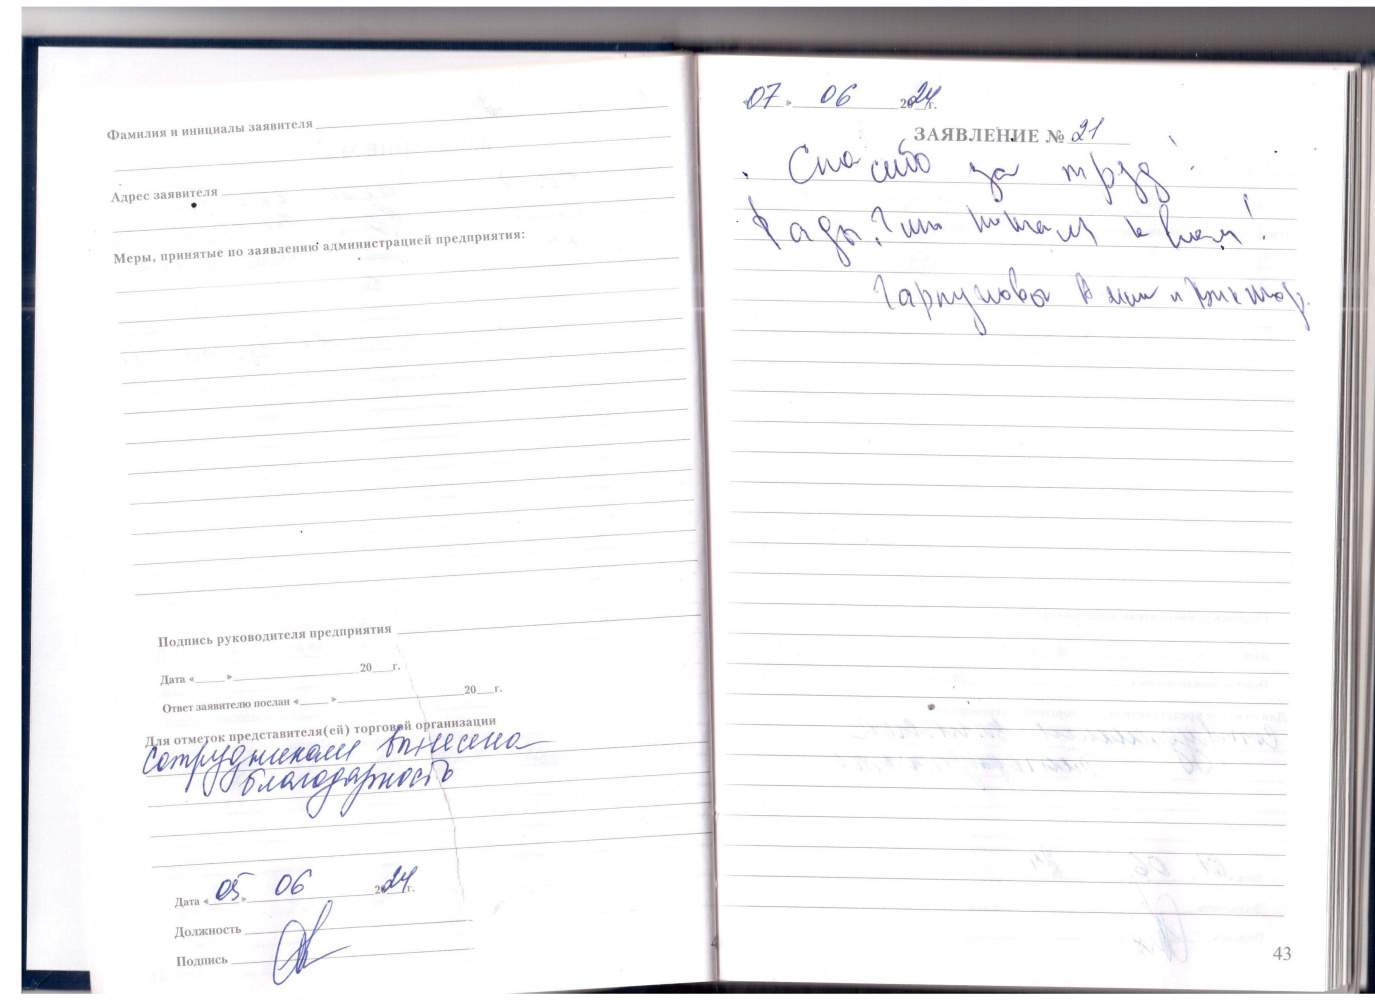 Фамилия и инициалы заявителя
Адрес заявителя
Меры, принятые по заявлению администрацией предприятия:
Подпись руководителя предприятия
Дата «____»____________20___г.
Ответ заявителю послан «____»____________20___г.
Для отметок представителя(ей) торговой организации
Сотрудникам вынесена
благодарность
Дата «05» 06 2024г.
Должность
Подпись
«07» 06 2024г.
ЗАЯВЛЕНИЕ № 21
Спасибо за труд!
Рады, что попали к вам!
43